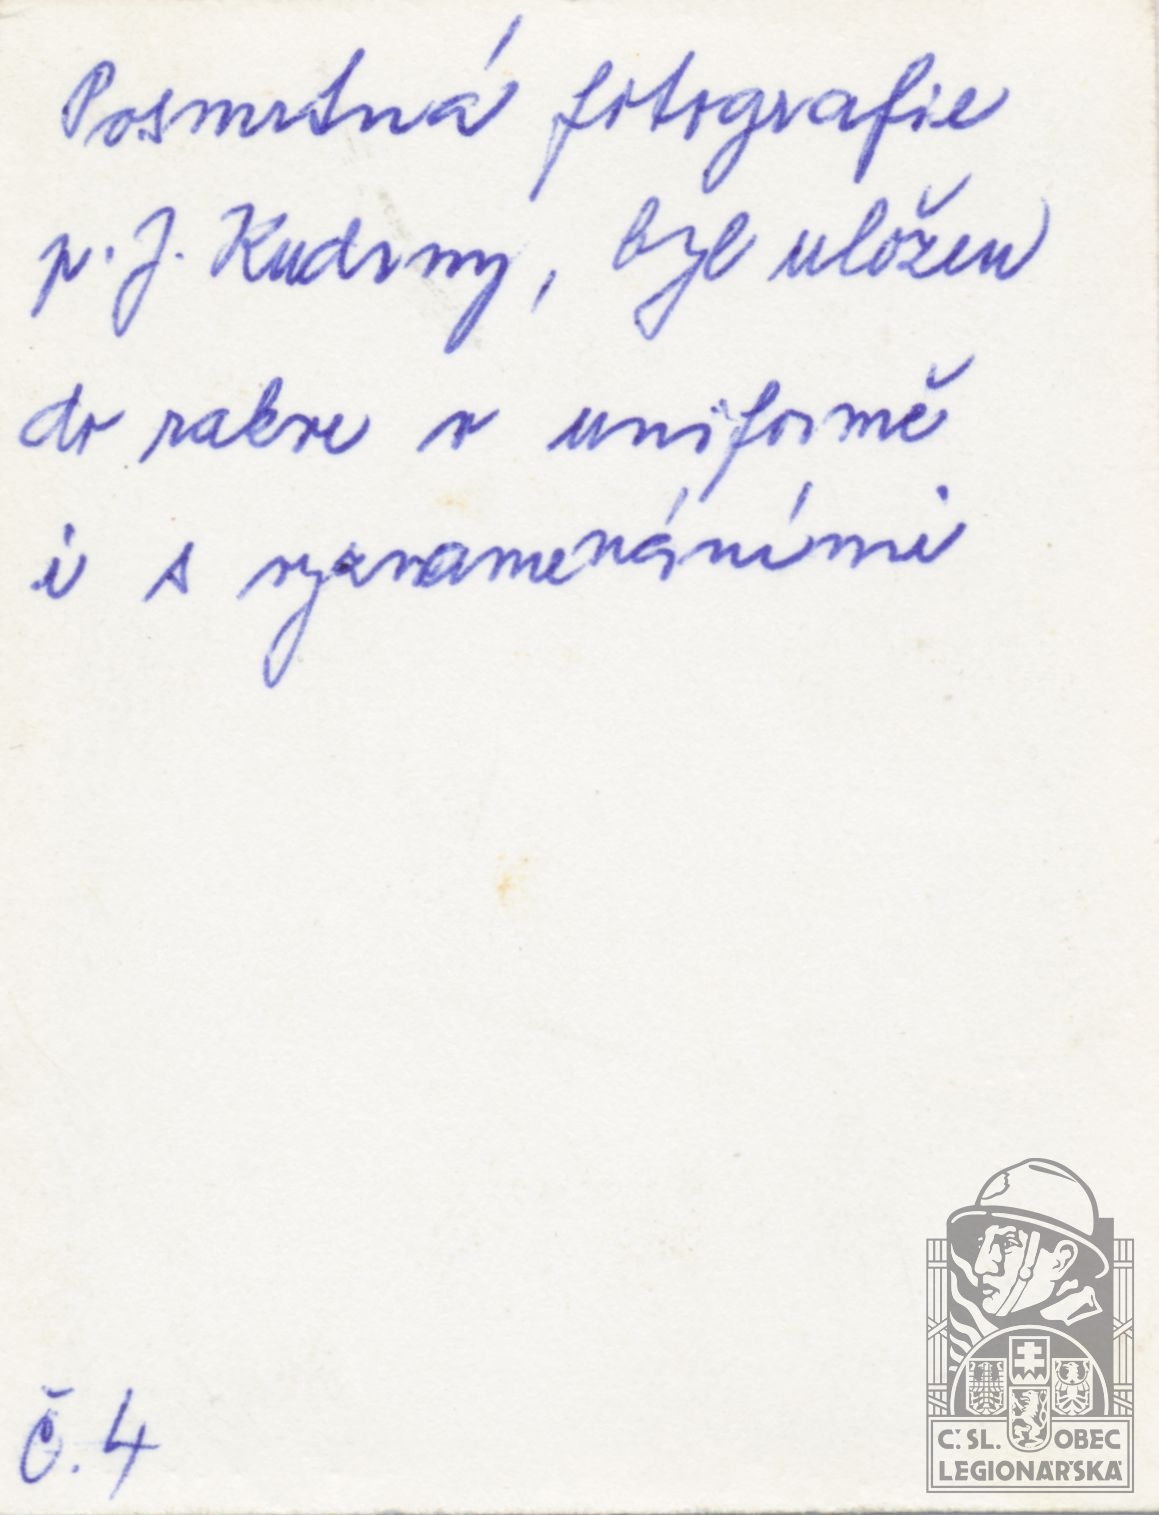 Posmrtná fotografie
p. J. Kudrny, byl uložen
do rakve v uniformě
i s vyznamenáními
Č. 4
Č. SL. OBEC
LEGIONÁŘSKÁ